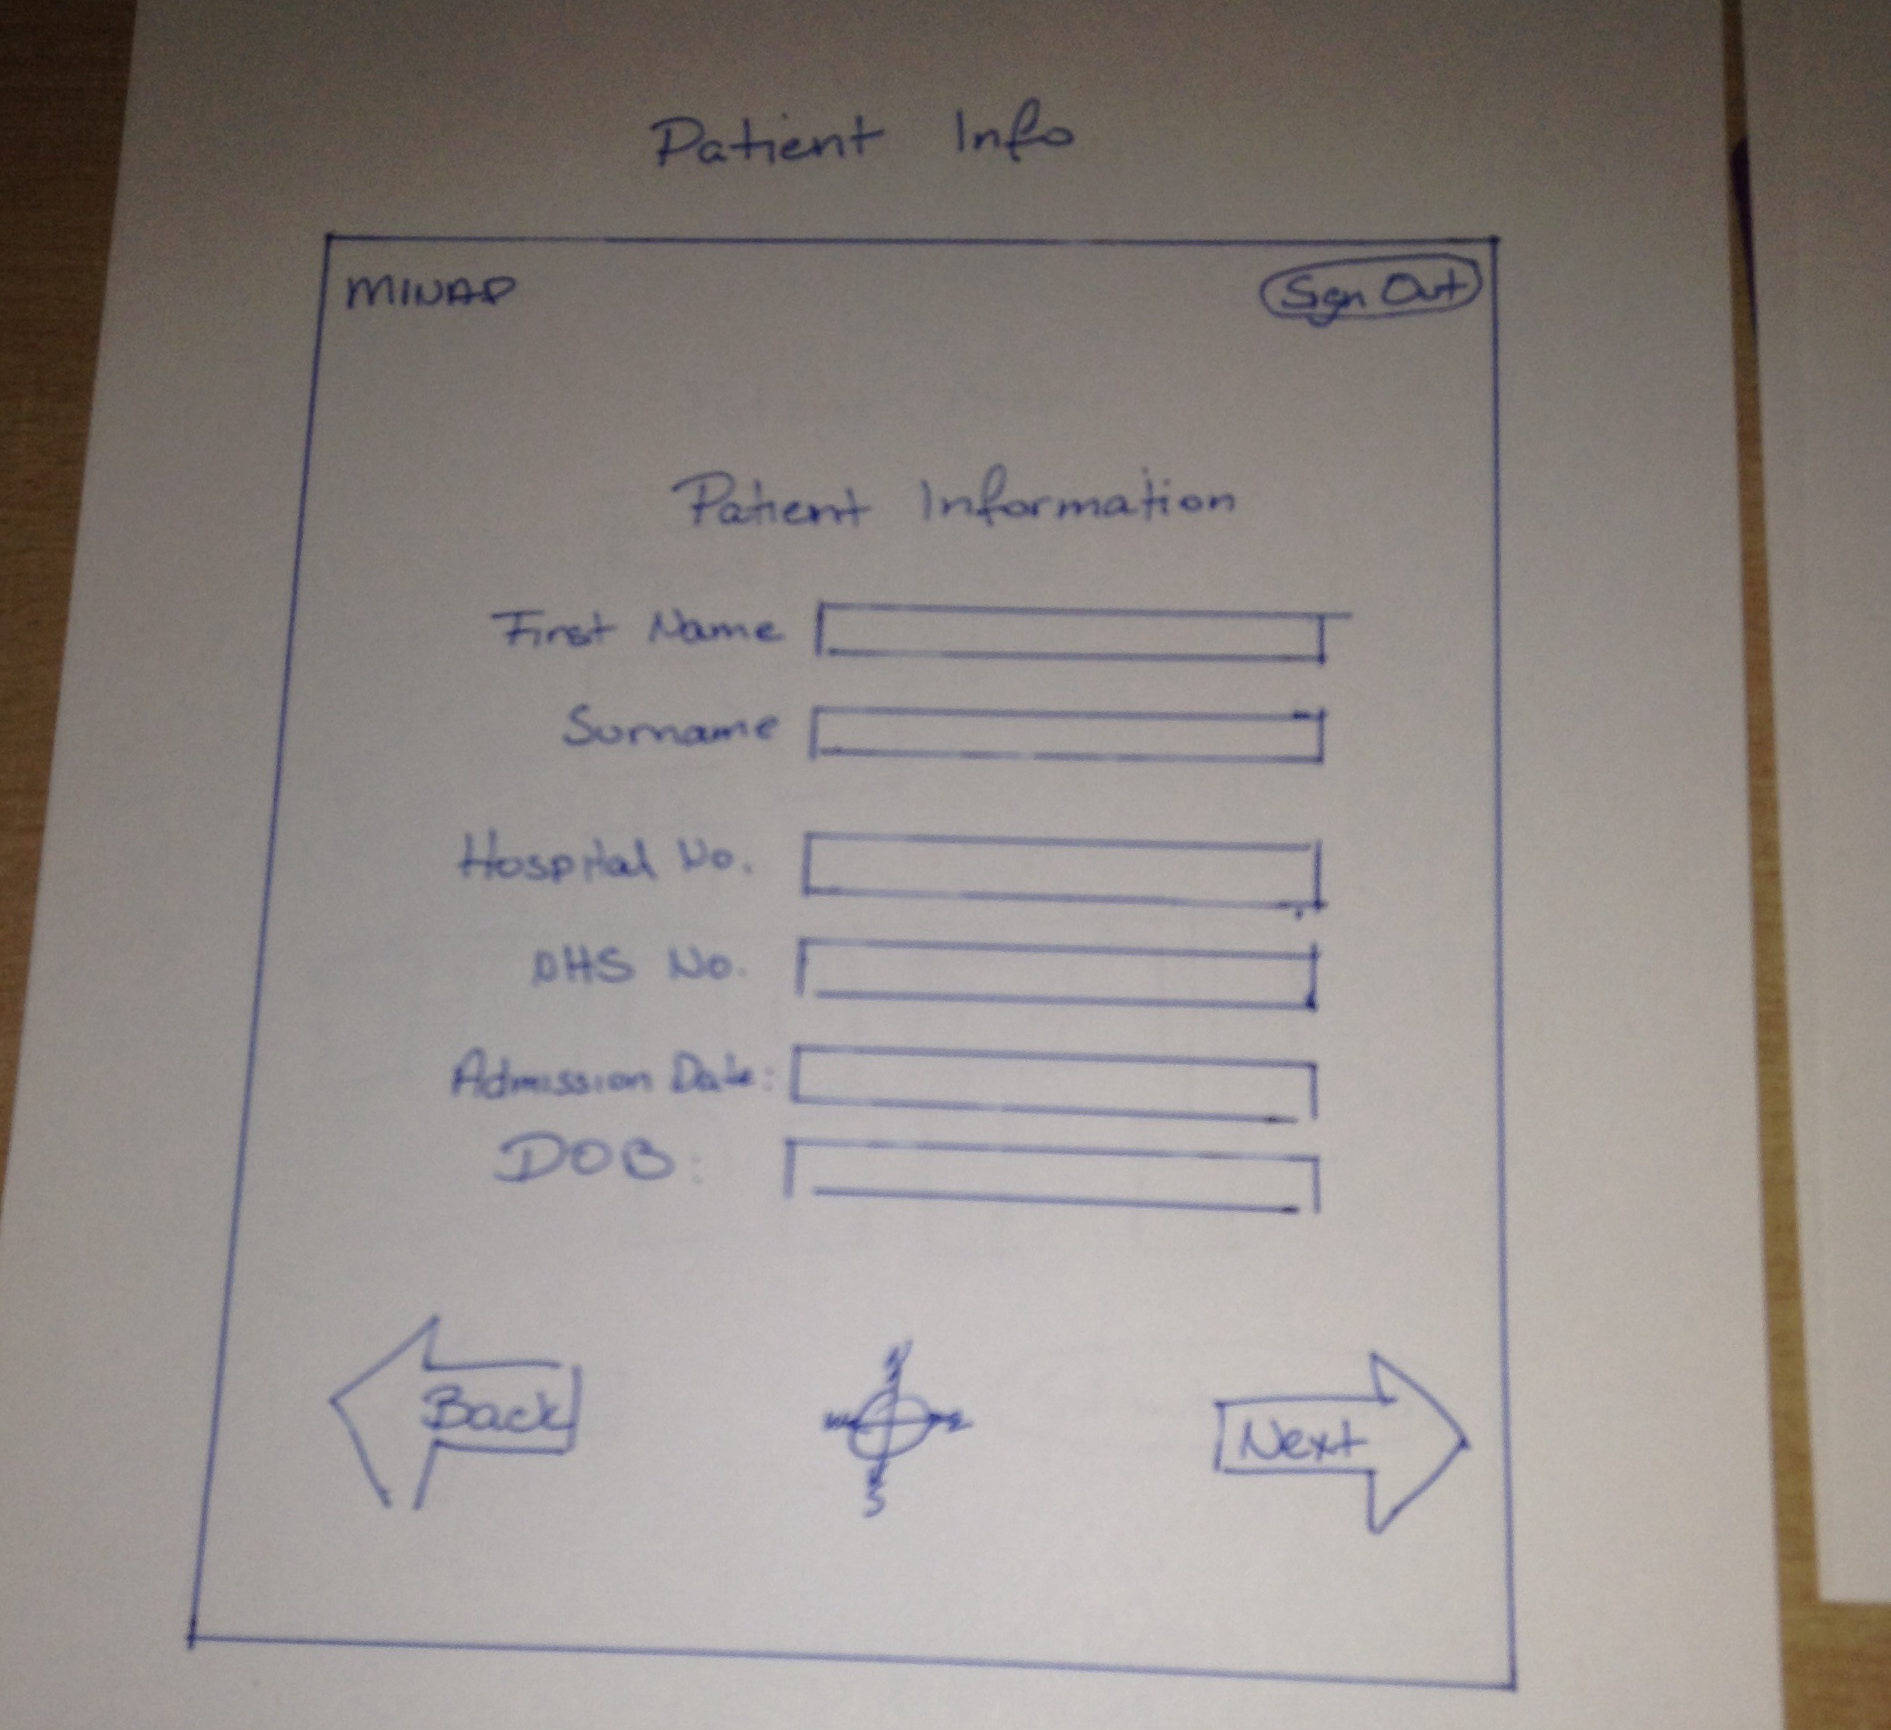 Patient Info
MINAP
Sign Out
Patient Information
First Name
Surname
Hospital No.
DHS No.
Admission Date:
DOB:
Back
S
Next